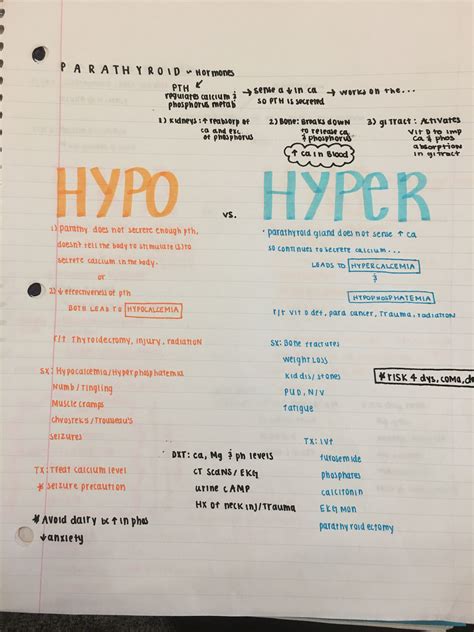 PARATHYROID ~ Hormones
PTH
regulates calcium & phosphorus metab → sense a ↓ in ca so PTH is secreted → works on the...
1) Kidneys: ↑ reabsorp of ca and exc. of phosphorus
2) Bone: Breaks down to release ca & phosphorus
3) GI Tract: Activates Vit D to imp ca & phos absorption in GI tract
↑ ca in Blood
HYPO vs. HYPER
1) parathy does not secrete enough pth,
doesn't tell the body to stimulate (s) to
secrete calcium in the body.
or
2) ↓ effectiveness of pth
BOTH LEAD TO HYPOCALCEMIA
r/t Thyroidectomy, injury, radiation
SX: Hypocalcemia/Hyperphosphatemia
Numb/Tingling
Muscle cramps
chvosteks/Trousseau's
seizures
TX: Treat calcium level
* seizure precaution
* Avoid dairy bc ↑ in phos
↓ anxiety
DXT: ca, Mg & ph levels
CT scans/EKG
urine cAMP
HX of neck inj/Trauma
parathyroid gland does not sense ↑ ca
so continues to secrete calcium...
LEADS TO HYPERCALCEMIA
&
HYPOPHOSPHATEMIA
r/t Vit D def, para cancer, Trauma, radiation
SX: Bone fractures
weight LOSS
kiddis/stones
PUD, N/V
fatigue
*RISK 4 dys, COMA,
TX: IVF
furosemide
phosphates
calcitonin
EKG MON
parathyroidectomy